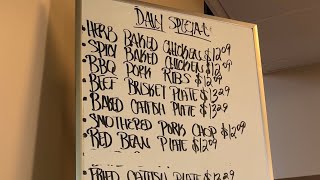 DAILY SPECIAL
HERB BAKED CHICKEN $12.09
SPICY BAKED CHICKEN $12.09
BBQ PORK RIBS $12.09
BEEF BRISKET PLATE $13.29
BAKED CATFISH PLATE $13.29
SMOTHERED PORK CHOP $12.09
RED BEAN PLATE $12.09
FRIED CATFISH PLATE